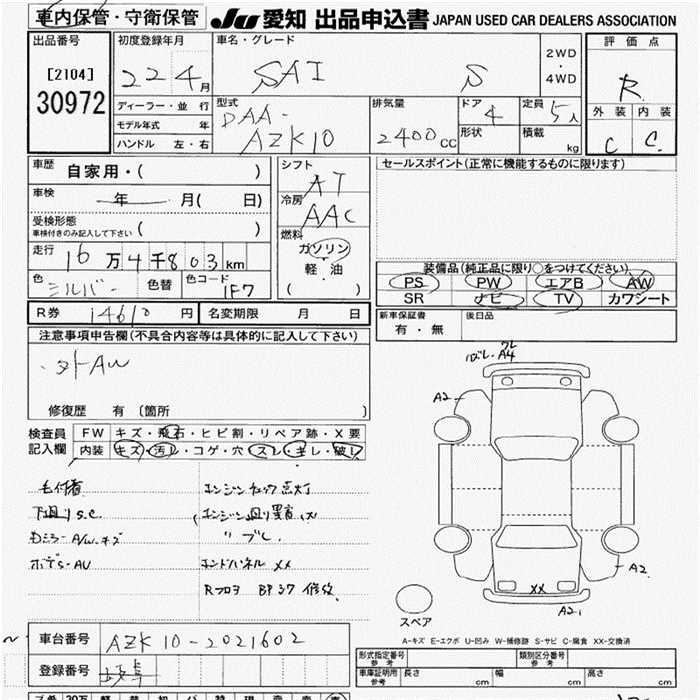 車内保管・守衛保管
JU 愛知 出品申込書 JAPAN USED CAR DEALERS ASSOCIATION
出品番号 初度登録年月 車名・グレード 2WD・4WD 評価点
[2104]
30972
22 4月 SAI S R
ディーラー・並行 型式 排気量 ドア 定員 外装 内装
モデル年式 年 DAA- 4 5人
ハンドル 左・右 AZK10 2400CC 形状 積載 kg C C
車歴 自家用・( ) シフト AT セールスポイント(正常に機能するものに限ります)
車検 年 月( 日) 冷房 AAC
受検形態 車検付きのみ記入して下さい ( ) 燃料
走行 16万4千803km ガソリン
色 シルバー 色替 色コード 1F7 軽・油
( )
装備品(純正品に限り○をつけてください)
PS PW エアB AW
SR ナビ TV カワシート
R券 14610円 名変期限 月 日 新車保証書 有・無 後日品
注意事項申告欄(不具合内容等は具体的に記入して下さい)
・タトAW
修復歴 有 〔箇所 〕
検査員 FW キズ・飛石・ヒビ割・リペア跡・X要
記入欄 内装 キズ・汚レ・コゲ・穴・スレ・キレ・破レ
エンジンチェック点灯
下廻りS.C エンジン廻り異音 大
ミラーA/W.キズ 〃 ブレ
エンドパネル XX
修復
A4
A2
A2
XX
A2
スペア
A-キズ E-エクボ U-凹み W-補修跡 S-サビ C-腐食 XX-交換済
車台番号 AZK10-2021602
登録番号
形式指定番号 参考 類別区分番号 参考
車庫証明用 参考 長さ cm 幅 cm 高さ cm